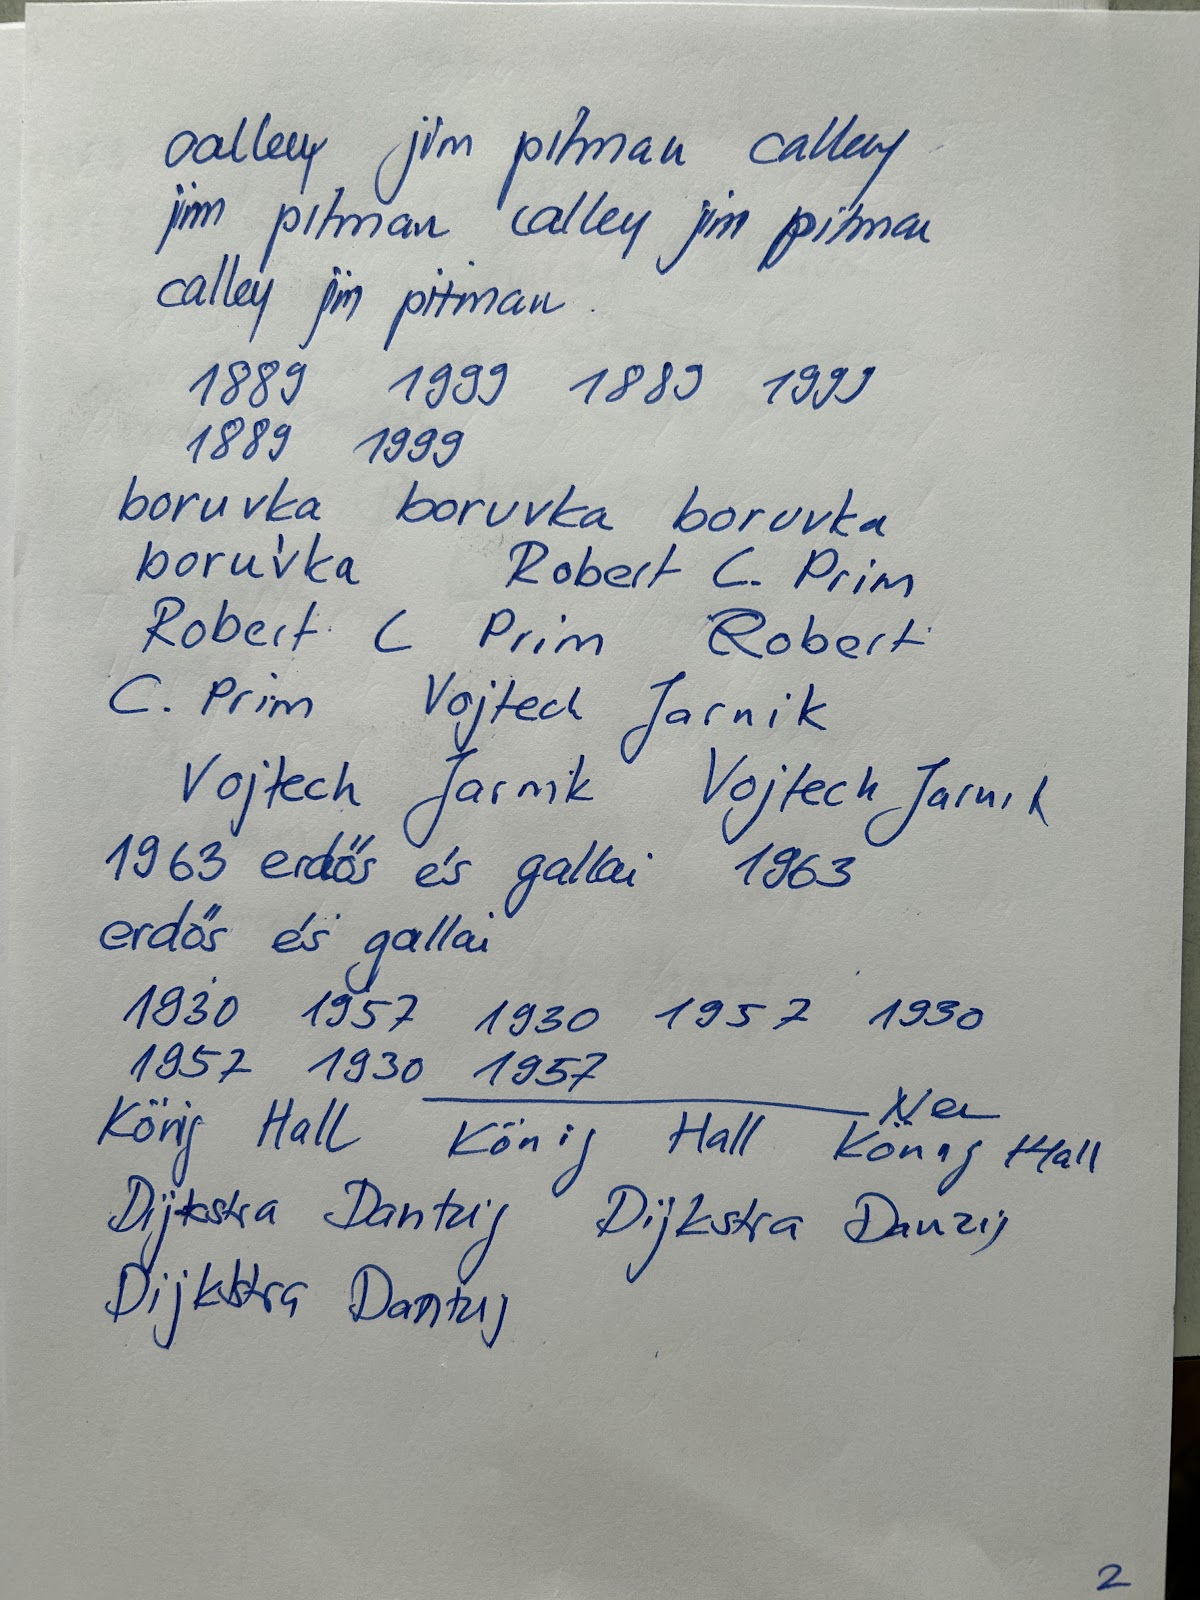 calley jim pitman calley
jim pitman calley jim pitman
calley jim pitman
1889 1999 1889 1999
1889 1999
boruvka boruvka boruvka
boruvka Robert C. Prim
Robert C Prim Robert
C. Prim Vojtech Jarnik
Vojtech Jarnik Vojtech Jarnik
1963 erdős és gallai 1963
erdős és gallai
1930 1957 1930 1957 1930
1957 1930 1957
Neu
König Hall König Hall König Hall
Dijkstra Dantzig Dijkstra Danzig
Dijkstra Dantzig
2